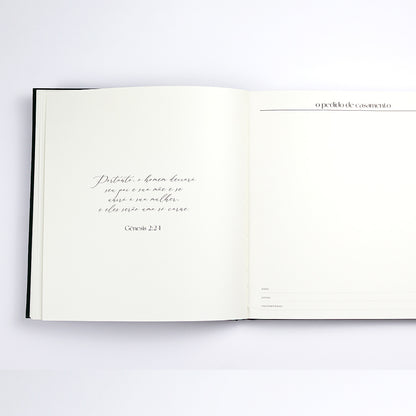 Portanto, o homem deixará
seu pai e sua mãe, e se
unirá a sua mulher,
e eles serão uma só carne.
Gênesis 2:24
o pedido de casamento